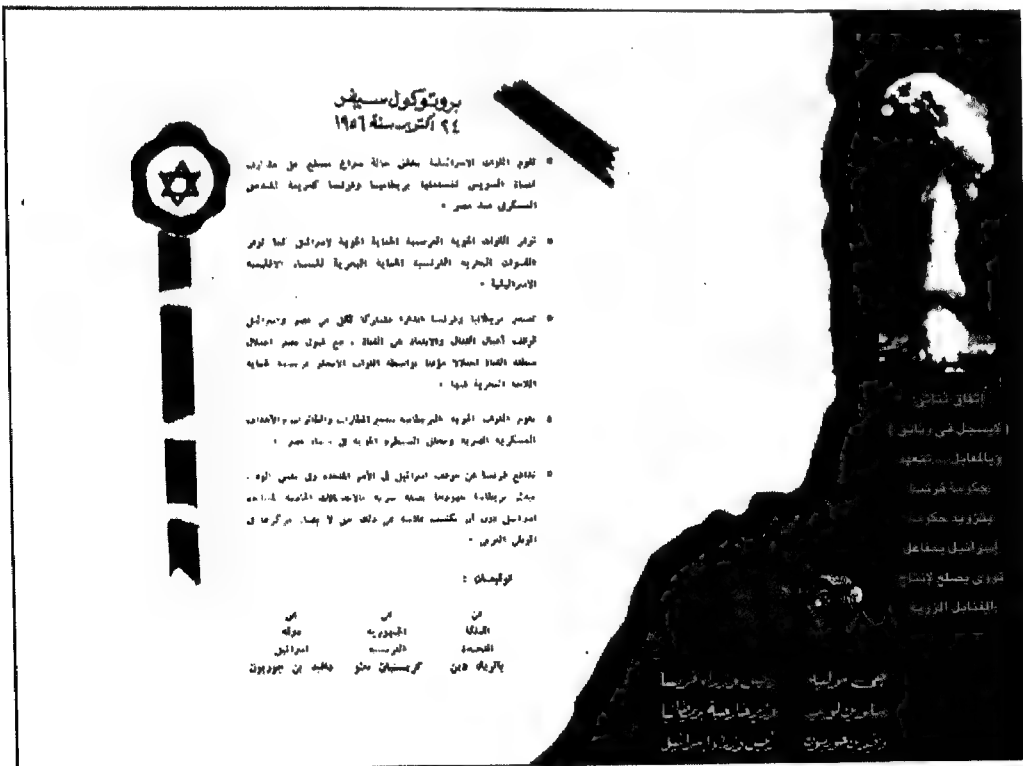 بروتوكول سيفر
٢٤ أكتوبر سنة ١٩٥٦
• تقوم القوات الاسرائيلية بخلق حالة صراع مسلح على مشارف
قناة السويس لتستغلها بريطانيا وفرنسا كذريعة للتدخل
العسكرى ضد مصر .
• توفر القوات الجوية الفرنسية الحماية الجوية لاسرائيل كما توفر
القوات البحرية الفرنسية الحماية البحرية للمياه الاقليمية
الاسرائيلية .
• تصدر بريطانيا وفرنسا انذارا مشتركا لكل من مصر واسرائيل
لوقف أعمال القتال والابتعاد عن القناة ، مع قبول مصر احتلال
منطقة القناة احتلالا مؤقتا بواسطة القوات الأنجلو فرنسية لحماية
الملاحة البحرية فيها .
• تقوم القوات الجوية البريطانية بتدمير المطارات والطائرات والأهداف
العسكرية المصرية وتحقق السيطرة الجوية فى سماء مصر .
• تدافع فرنسا عن موقف اسرائيل فى الأمم المتحدة وفى نفس الوقت
بريطانيا جهودها بصفة سرية بالاتصالات الخاصة لمساندة
اسرائيل دون أن تكشف علانية عن ذلك حتى لا يضار مركزها فى
الوطن العربى .
توقيعات :
عن عن عن
المملكة الجمهورية دولة
المتحدة الفرنسية اسرائيل
باتريك دين كريستيان بينو دافيد بن جوريون
إتفاق ثنائى
(لايسجل فى وثائق)
وبالمقابل .. تتعهد
حكومة فرنسا
بتزويد حكومة
إسرائيل بمفاعل
نووى يصلح لإنتاج
القنابل الذرية
جى موليه رئيس وزراء فرنسا
سلوين لويد وزير خارجية بريطانيا
دافيد بن جوريون رئيس وزراء إسرائيل